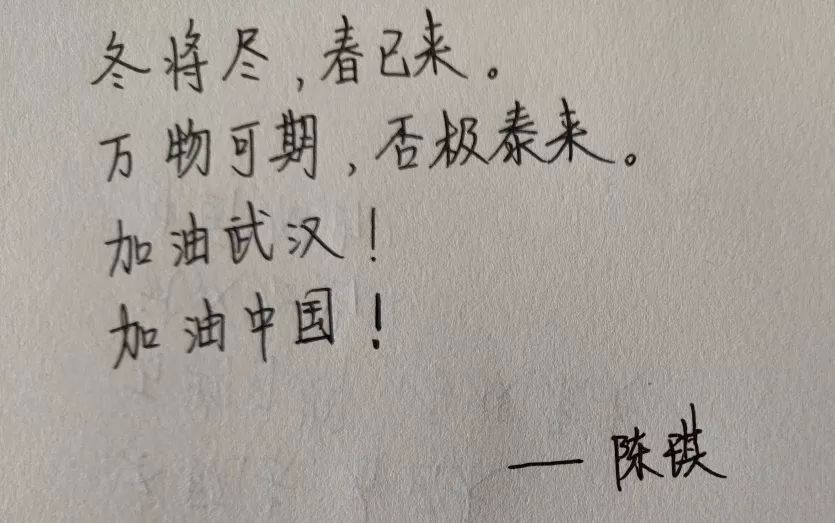 冬将尽,春已来。
万物可期,否极泰来。
加油武汉!
加油中国!
——陈琪